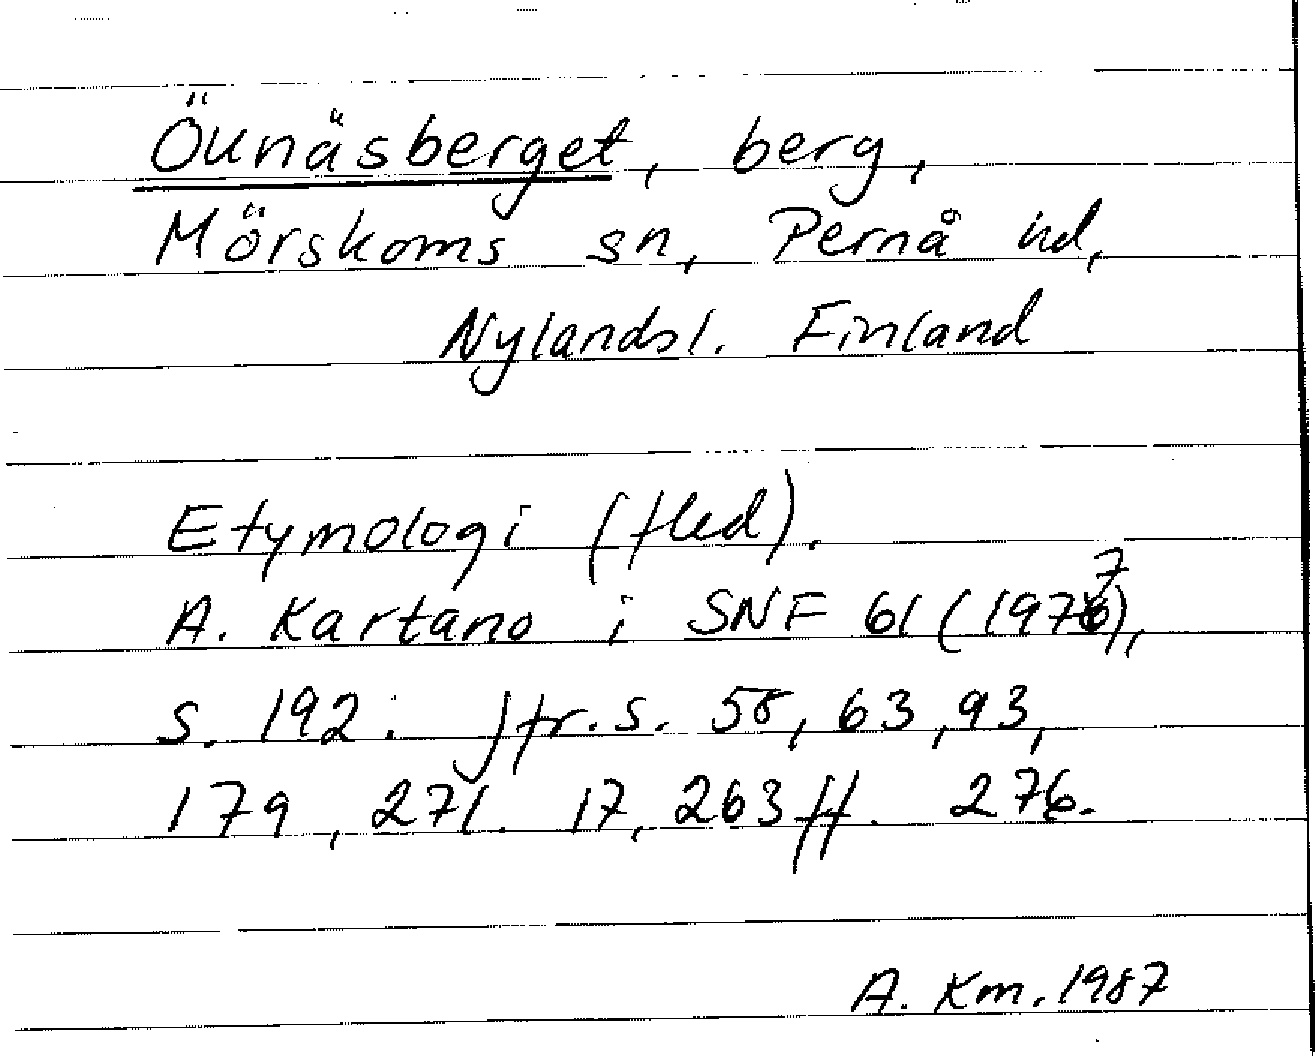 Öunäsberget, berg,
Mörskoms sn, Pernå hd,
Nylandsl. Finland
Etymologi (fled).
A. Kartano i SNF 61 (1977),
s. 192. Jfr. s. 58, 63, 93,
179, 271. 17, 263 ff. 276.
A. Km. 1987